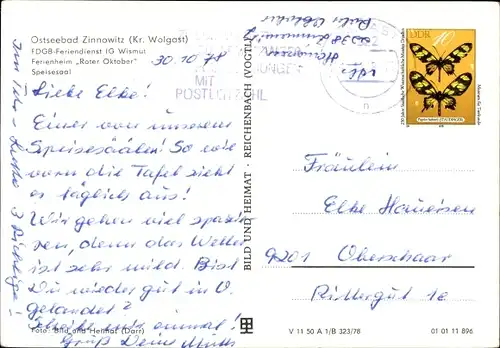 Ostseebad Zinnowitz (Kr. Wolgast)
FDGB-Feriendienst IG Wismut
Ferienheim „Roter Oktober"
Speisesaal
30.10.78
Liebe Elke!
Einer von unseren
Speisesäälen! So wie
vorn die Tafel sieht
es täglich aus!
Wir gehen viel spazie-
ren, denn das Wetter
ist sehr mild. Bist
Du wieder gut in O.
gelandet?
Schreibe mir einmal!
Gruß Deine Mutti
Foto: Bild und Heimat (Darr)
BILD UND HEIMAT · REICHENBACH (VOGTL)
MIT
POSTLEITZAHL
DDR
10
Fräulein
Elke
9201 Oberschaar
Rittergut 1c
V 11 50 A 1/B 323/78
01 01 11 896